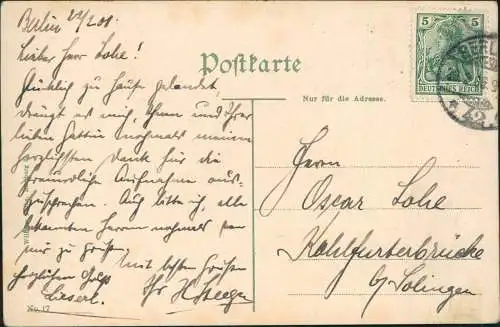 Berlin 22/2 08.
Lieber Herr Lohe!
Glücklich zu Hause gelandet
drängt es mich, Ihnen und Ihrer
lieben Gattin nochmals meinen
herzlichsten Dank für die
freundliche Aufnahme aus-
zusprechen. Auch bitte ich, alle
bekannten Herren nochmals von
mir zu grüßen.
Mit besten Grüßen
Ihr
herzlichen Gruß
Lieserl.
No. 17
Postkarte
Nur für die Adresse.
5 5
DEUTSCHES REICH
BERLIN
Herrn
Oscar Lohe
Kohlfurterbrücke
b/ Solingen